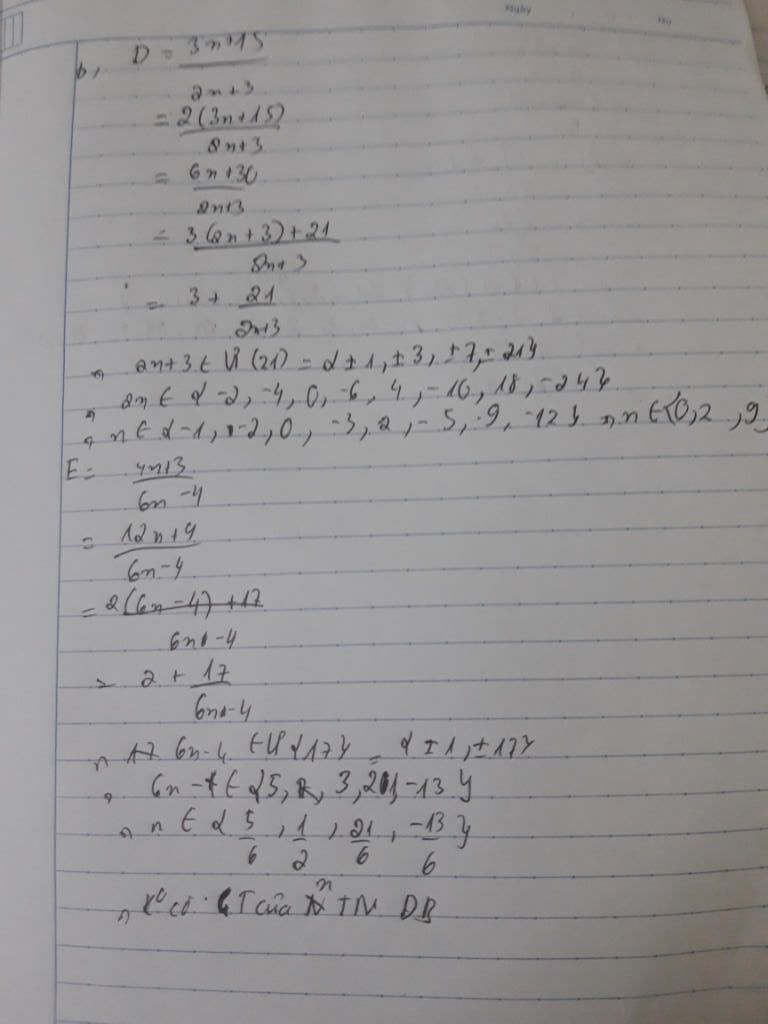 b, D = 3n+15
2n+3
= 2(3n+15)
2n+3
= 6n+30
2n+3
= 3(2n+3)+21
2n+3
= 3 + 21
2n+3
2n+3 ∈ Ư(21) = {±1, ±3, ±7, ±21}
2n ∈ {-2, -4, 0, -6, 4, -10, 18, -24}
n ∈ {-1, -2, 0, -3, 2, -5, 9, -12} n ∈ {0, 2, 9
E = 4n+3
6n-4
= 12n+9
6n-4
= 2(6n-4)+17
6n-4
= 2 + 17
6n-4
6n-4 ∈ Ư{17} = {±1, ±17}
6n ∈ {5, 3, 21, -13}
n ∈ {5/6, 1/2, 21/6, -13/6}
K⁰ có GT của n TM ĐB